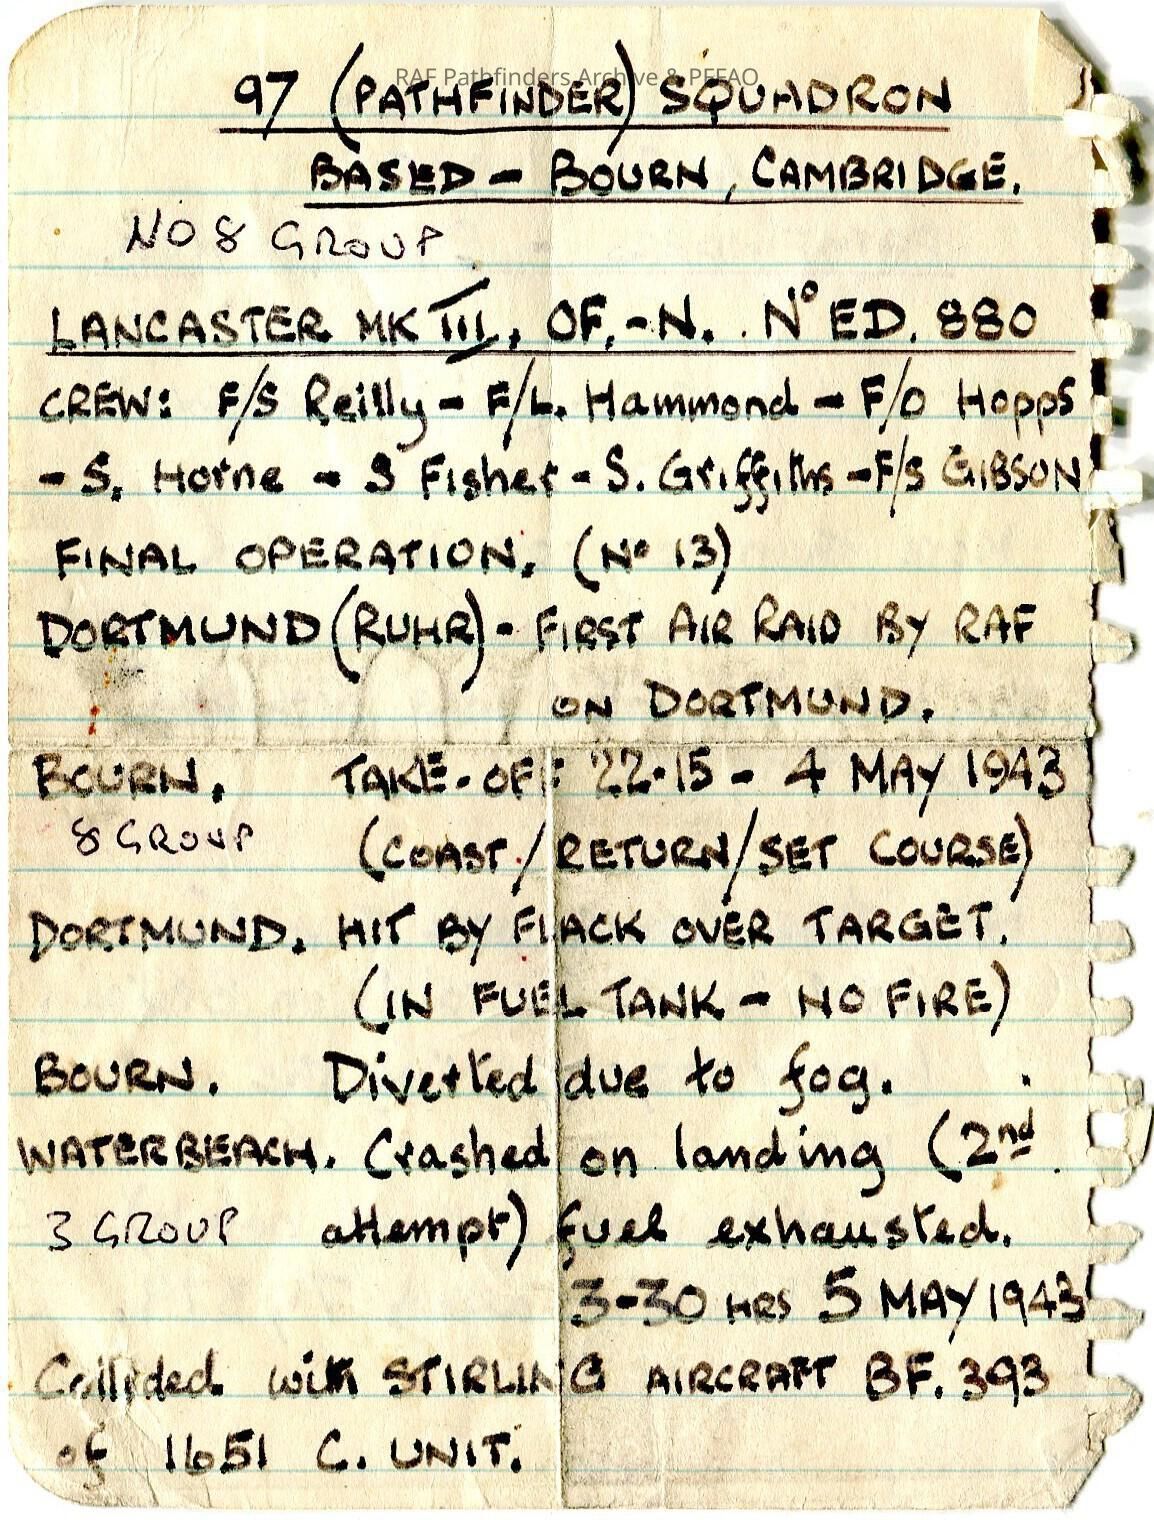 RAF Pathfinders Archive & PFFAO
97 (PATHFINDER) SQUADRON
BASED - BOURN, CAMBRIDGE.
NO 8 GROUP
LANCASTER MK III, OF.-N. Nº ED. 880
CREW: F/S Reilly - F/L. Hammond - F/O Hopps
- S. Horne - S Fisher - S. Griffiths - F/S GIBSON
FINAL OPERATION. (Nº 13)
DORTMUND (RUHR) - FIRST AIR RAID BY RAF
ON DORTMUND.
BOURN. TAKE-OFF 22.15 - 4 MAY 1943
8 GROUP (COAST/RETURN/SET COURSE)
DORTMUND. HIT BY FLACK OVER TARGET.
(IN FUEL TANK - NO FIRE)
BOURN. Diverted due to fog.
WATERBEACH. Crashed on landing (2nd
3 GROUP attempt) fuel exhausted.
3-30 HRS 5 MAY 1943
Collided with STIRLING AIRCRAFT BF. 393
of 1651 C. UNIT.